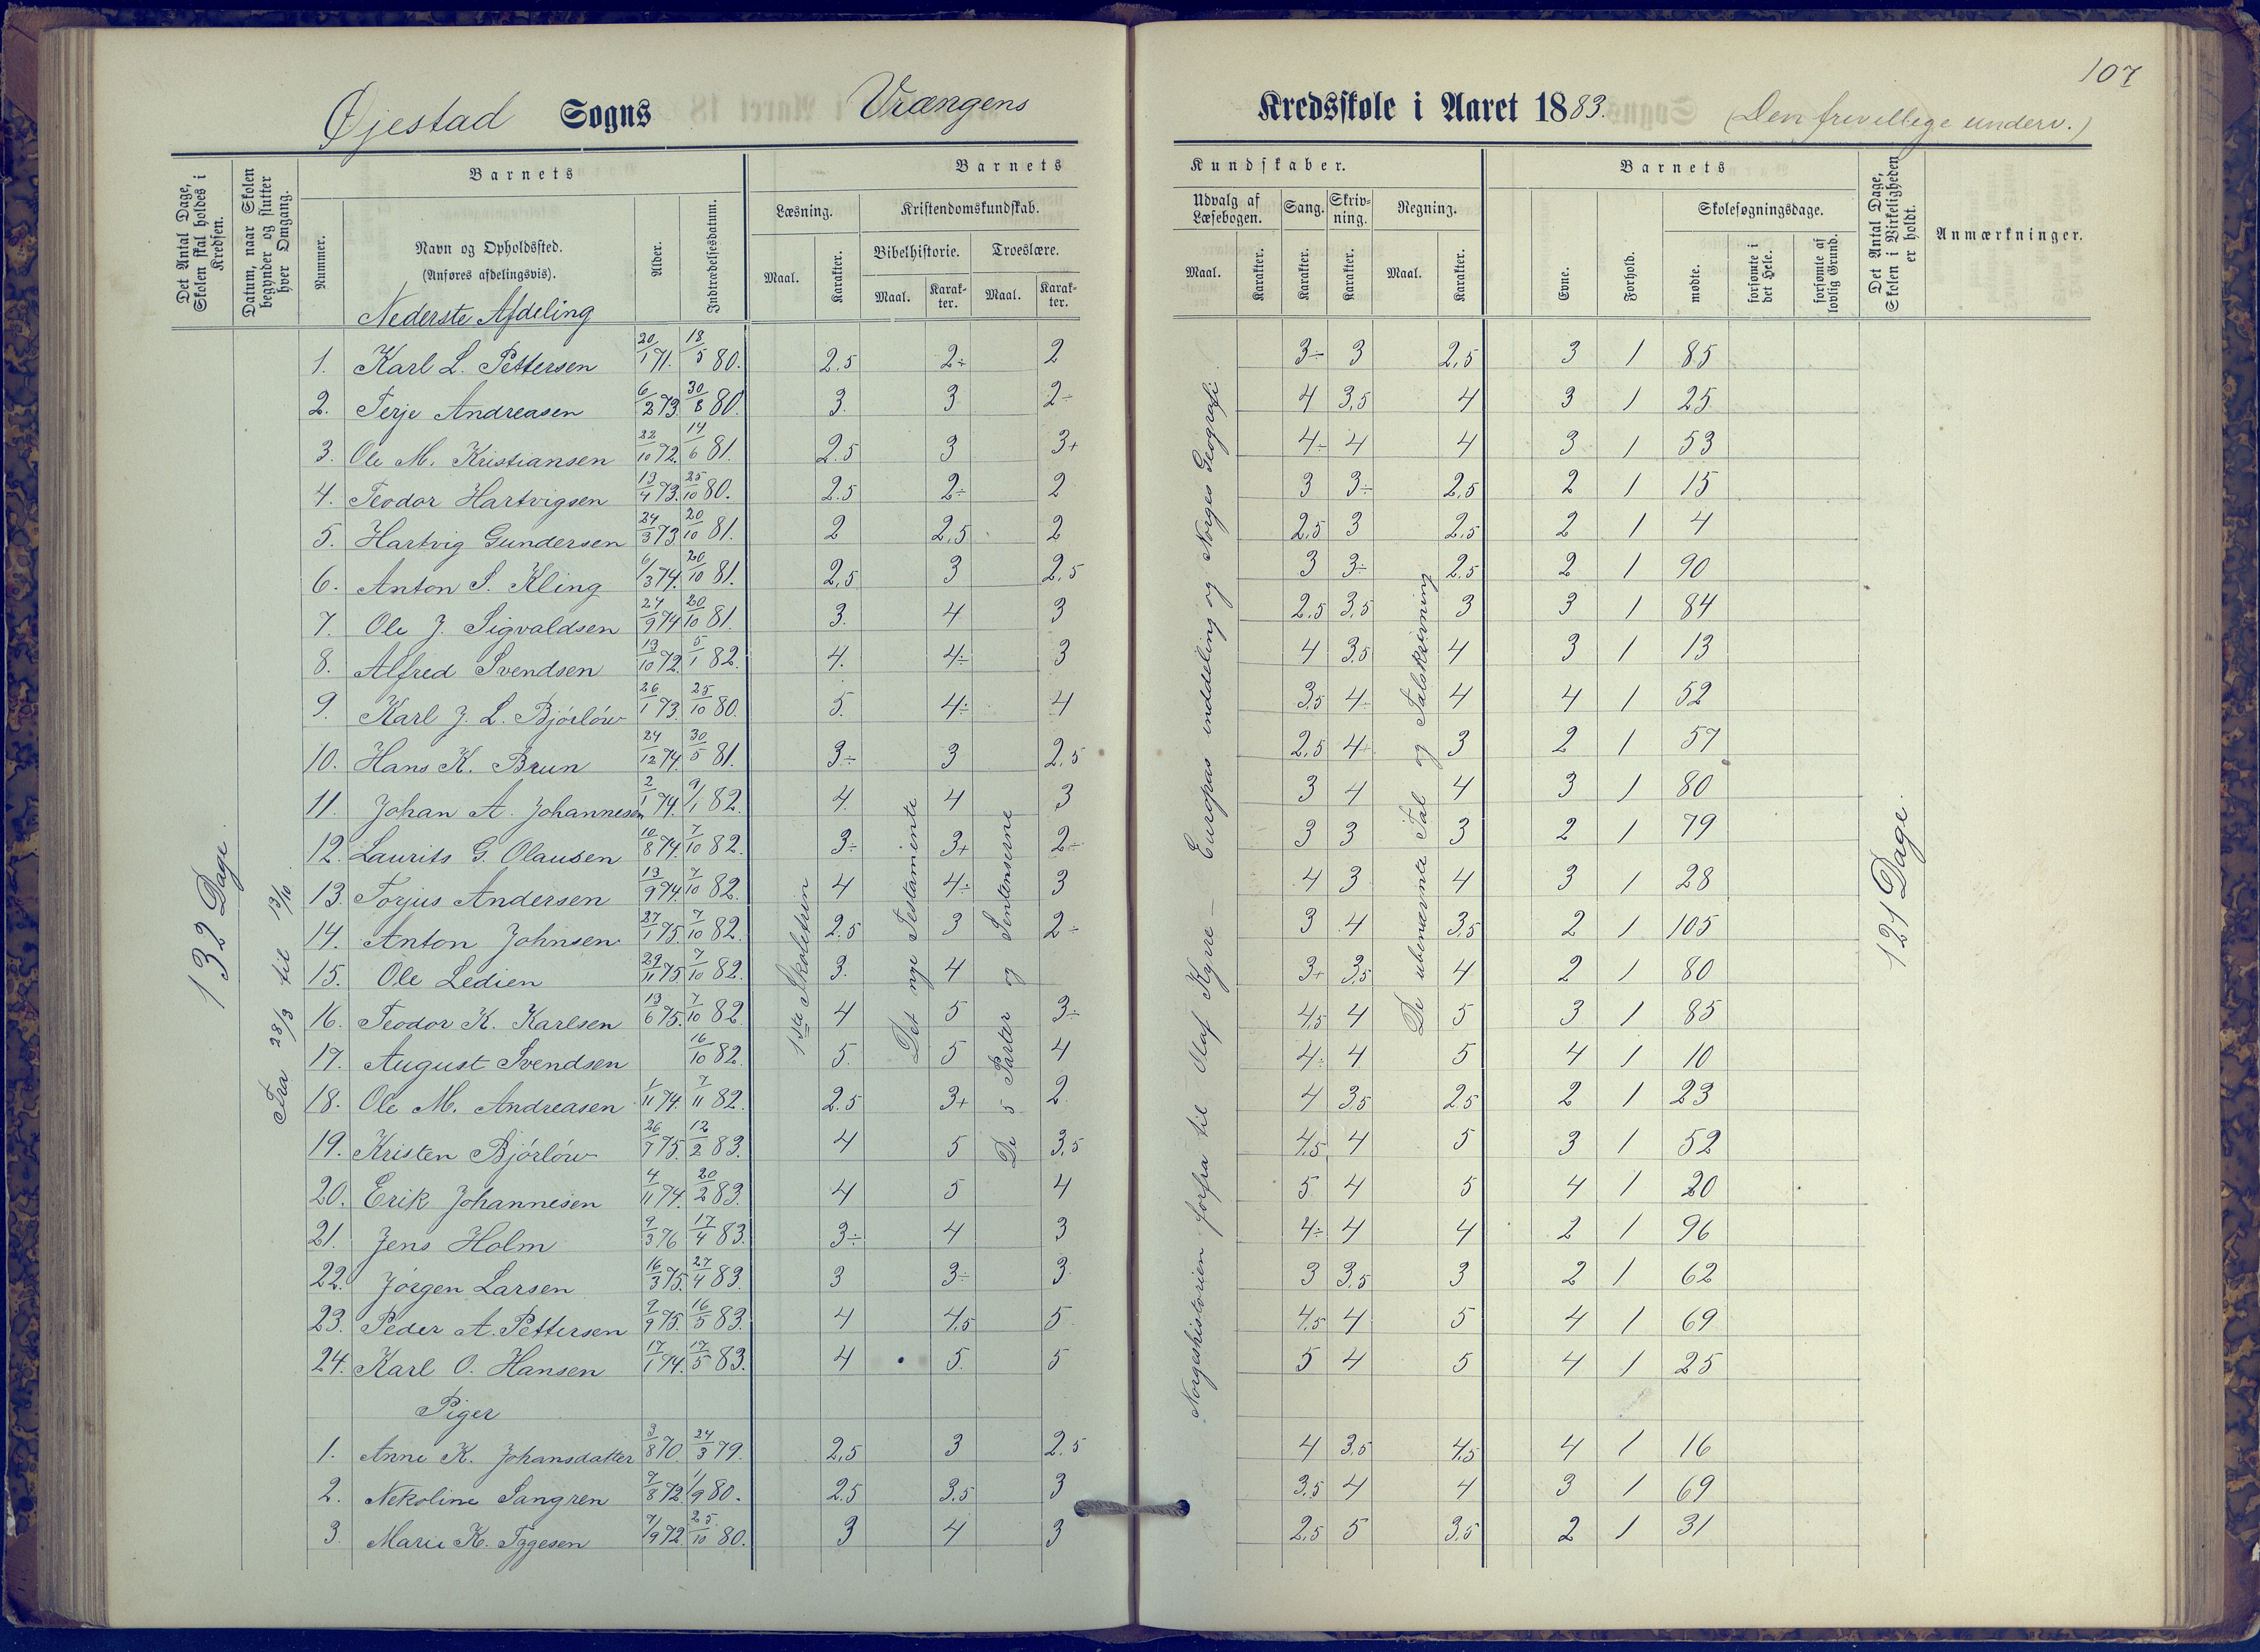 107
Øjestad Sogns Vrængens Kredsskole i Aaret 1883. (Den frivellige underv.)
Det Antal Dage, Skolen skal holdes i Kredsen.
Datum, naar Skolen begynder og slutter hver Omgang.
Barnets
Nummer.
Navn og Opholdssted.
(Anføres afdelingsvis).
Nederste Afdeling
Alder.
Indtrædelsesdatum.
Barnets Kundskaber.
Læsning.
Maal.
Karakter.
Kristendomskundskab.
Bibelhistorie.
Maal.
Karakter.
Troeslære.
Maal.
Karakter.
Udvalg af Læsebogen.
Maal.
Karakter.
Sang.
Karakter.
Skrivning.
Karakter.
Regning.
Maal.
Karakter.
Barnets
Evne.
Forhold.
Skolesøgningsdage.
mødte.
forsømte i det Hele.
forsømte af lovlig Grund.
Det Antal Dage, Skolen i Virkeligheden er holdt.
Anmærkninger.
132 Dage.
Fra 28/3 til 13/10
1ste Skoletrin
Det nye Testamente
De 5 Parter og Sentenserne
Norgeshistorien forfra til Olaf Kyrre — Europas inddeling og Norges Geografi
De ubenævnte Tal og Talskrivning
121 Dage.
1. Karl L. Pettersen 20/1 71. 18/5 80. 2.5 2÷ 2 3÷ 3 2,5 3 1 85
2. Terje Andreasen 6/2 73. 30/8 80. 3. 3 2÷ 4 3,5 4 3 1 25
3. Ole M. Kristiansen 22/10 72. 14/6 81. 2.5 3 3+ 4÷ 4 4 3 1 53
4. Teodor Hartvigsen 13/4 73. 25/10 80. 2.5 2÷ 2 3 3÷ 2,5 2 1 15
5. Hartvig Gundersen 24/3 73. 20/10 81. 2 2,5 2 2,5 3 2,5 2 1 4
6. Anton S. Kling 6/3 74. 20/10 81. 2,5 3 2,5 3 3÷ 2,5 2 1 90
7. Ole J. Sigvaldsen 24/9 74 20/10 81. 3. 4 3 2,5 3,5 3 3 1 84
8. Alfred Svendsen 13/10 72. 5/1 82. 4. 4÷ 3 4 3,5 4 3 1 13
9. Karl J. L. Bjórlów 26/1 73. 25/10 80. 5. 4÷ 4 3,5 4÷ 4 4 1 52
10. Hans K. Brun 24/12 74. 30/5 81. 3÷ 3 2,5 2,5 4÷ 3 2 1 57
11. Johan A. Johannesen 2/1 74. 9/1 82. 4. 4 3 3 4 4 3 1 80
12. Laurits G. Olausen 10/8 74. 7/10 82. 3÷ 3+ 2÷ 3 3 3 2 1 79
13. Torjus Andersen 13/9 74. 7/10 82. 4 4÷ 3 4 3 4 3 1 28
14. Anton Johnsen 27/1 75. 7/10 82. 2.5 3 2÷ 3 4 3,5 2 1 105
15. Ole Ledien 29/11 75. 7/10 82. 3. 4 3+ 3,5 4 2 1 80
16. Teodor K. Karlsen 13/6 75. 7/10 82. 4 5 3÷ 4,5 4 5 3 1 85
17. August Svendsen 16/10 82. 5. 5 4 4÷ 4 5 4 1 10
18. Ole M. Andreasen 1/11 74. 7/11 82. 2.5 3+ 2. 4 3,5 2,5 2 1 23
19. Kristen Bjórlów 26/7 75. 12/2 83. 4 5 3,5 4,5 4 5 3 1 52
20. Erik Johannesen 4/11 74. 20/2 83. 4 5 4 5 4 5 4 1 20
21. Jens Holm 9/3 76 17/4 83. 3÷ 4 3 4÷ 4 4 2 1 96
22. Jörgen Larsen 16/3 75. 27/4 83. 3 3÷ 3 3 3,5 3 2 1 62
23. Peder A. Pettersen 2/9 75. 16/5 83. 4 4,5 5. 4,5 4 5 4 1 69
24. Karl O. Hansen 17/1 74. 17/5 83. 4 5. 5 5 4 5 4 1 25
Piger
1. Anne K. Johansdatter 3/8 70. 24/3 79. 2,5 3 2,5 4 3,5 4,5 4 1 16
2. Nekoline Sangren 7/8 72. 1/9 80. 2,5 3,5 3 3,5 4 4 3 1 69
3. Marie K. Tygesen 7/9 72. 25/10 80. 3 4 3 2,5 5 3,5 2 1 31